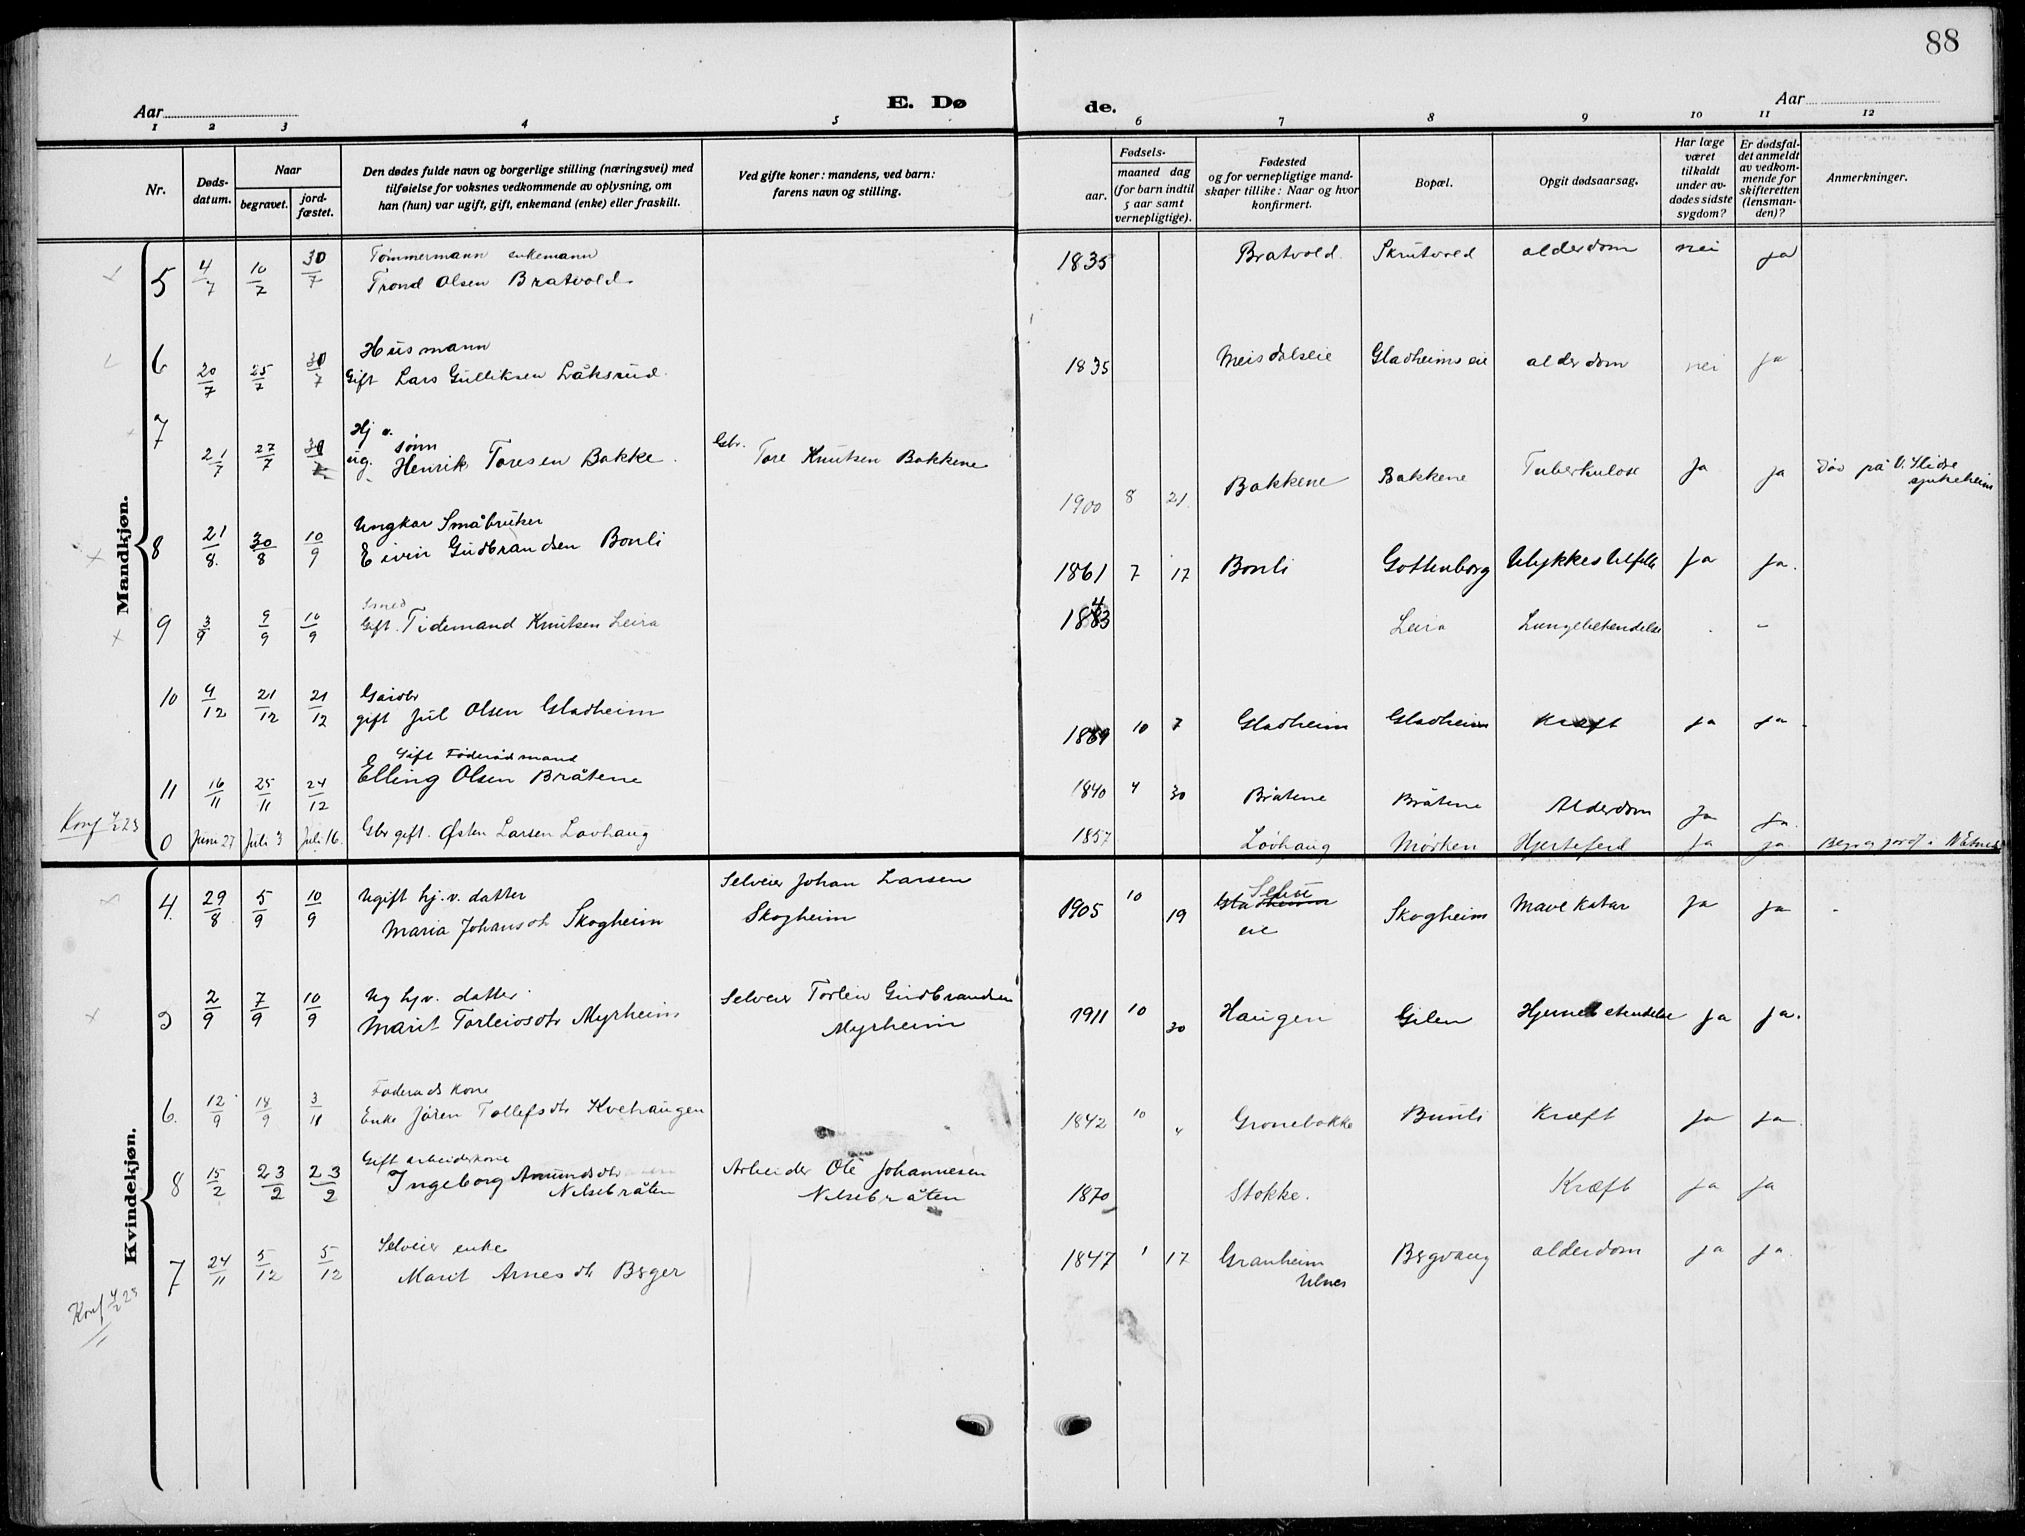 88
Aar
E. Dø
de.
Aar
1 2 3 4 5 6 7 8 9 10 11 12
Nr.
Døds-
datum.
Naar
begravet.
jord-
fæstet.
Den dødes fulde navn og borgerlige stilling (næringsvei) med
tilføielse for voksnes vedkommende av oplysning, om
han (hun) var ugift, gift, enkemand (enke) eller fraskilt.
Ved gifte koner: mandens, ved barn:
farens navn og stilling.
Fødsels-
aar.
maaned dag
(for barn indtil
5 aar samt
vernepligtige).
Fødested
og for vernepligtige mand-
skaper tillike: Naar og hvor
konfirmert.
Bopæl.
Opgit dødsaarsag.
Har læge
været
tilkaldt
under av-
dødes sidste
sygdom?
Er dødsfal-
det anmeldt
av vedkom-
mende for
skifteretten
(lensman-
den)?
Anmerkninger.
Mandkjøn.
Tømmermann enkemann
5 4/7 10/7 30/7 Trond Olsen Bratvold 1835 Bratvold Skrutvold alderdom nei ja
Husmann
6 20/7 25/7 30/7 Gift Lars Gulliksen Låksrud 1835 Meisdalseie Gladheims eie alderdom nei ja
Hj v.
sønn
7 21/7 27/7 30/7 ug. Henrik Toresen Bakke Gbr. Tore Knutsen Bakkene 1900 8 21 Bakkene Bakkene Tuberkulose Ja ja Død på V. Slidre
sjukeheim
Ungkar Småbruker
8 21/8 30/8 10/9 Eivin Gudbrandsen Bonli 1861 7 17 Bonli Gottenborg Ulykkestilfelle Ja Ja.
Smed
9 3/9 9/9 10/9 Gift. Tidemand Knutsen Leira 1883 4 Leira Lungebetendelse
Gaardbr
10 9/12 21/12 21/12 gift Jul Olsen Gladheim 1869 10 7 Gladheim Gladheim Kræft ja ja
Gift Føderådmand
11 16/11 25/11 24/12 Elling Olsen Bråtene 1840 4 30 Bråtene Bråtene Alderdom Ja Ja.
Konf 4/2 23
0 Juni 27 Juli 3 Juli 16. Gbr gift. Østen Larsen Lovhaug 1857 Lovhaug Mørken Hjertefeil Ja ja
Kvindekjøn.
4. 29/8 5/9 10/9 Ugift hj. v. datter
Maria Johansdtr Skogheim
Selveier Johan Larsen
Skogheim
1905 10 19 Gladheim
eie
Skogheim Mave katar Ja Ja
5 2/9 7/9 10/9 Ug hjv. datter
Marit Torleivsdtr Myrheim
Selveier Torlein Gudbrandsen
Myrheim
1911 10 30 Haugen Gilen Hjernebetendelse Ja Ja.
Føderads kone
6. 12/9 18/9 3/11 Enke Jøren Tollefsdtr Kvehaugen 1842 10 4 Gronebakke Bunli Kræft Ja Ja
Gift arbeiderkone
8 15/2 23/2 23/2 Ingeborg Amundsdtr
Nilsebråten
Arbeider Ole Johannesen
Nilsebråten
1870 Stokke. Kræft Ja Ja
Selveier enke
7 24/11 5/12 5/12 Marit Arnesdtr Berger 1847 1 17 Granheim
Ulnes
Bergvang alderdom Ja Ja.
Konf 4/2 23